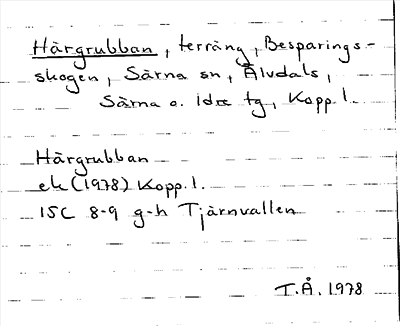 Härgrubban, terräng, Besparings-
skogen, Särna sn, Älvdals,
Särna o. Idre tg, Kopp l.
Härgrubban
ek (1978) Kopp. l.
15C 8-9 g-h Tjärnvallen
T.Å. 1978